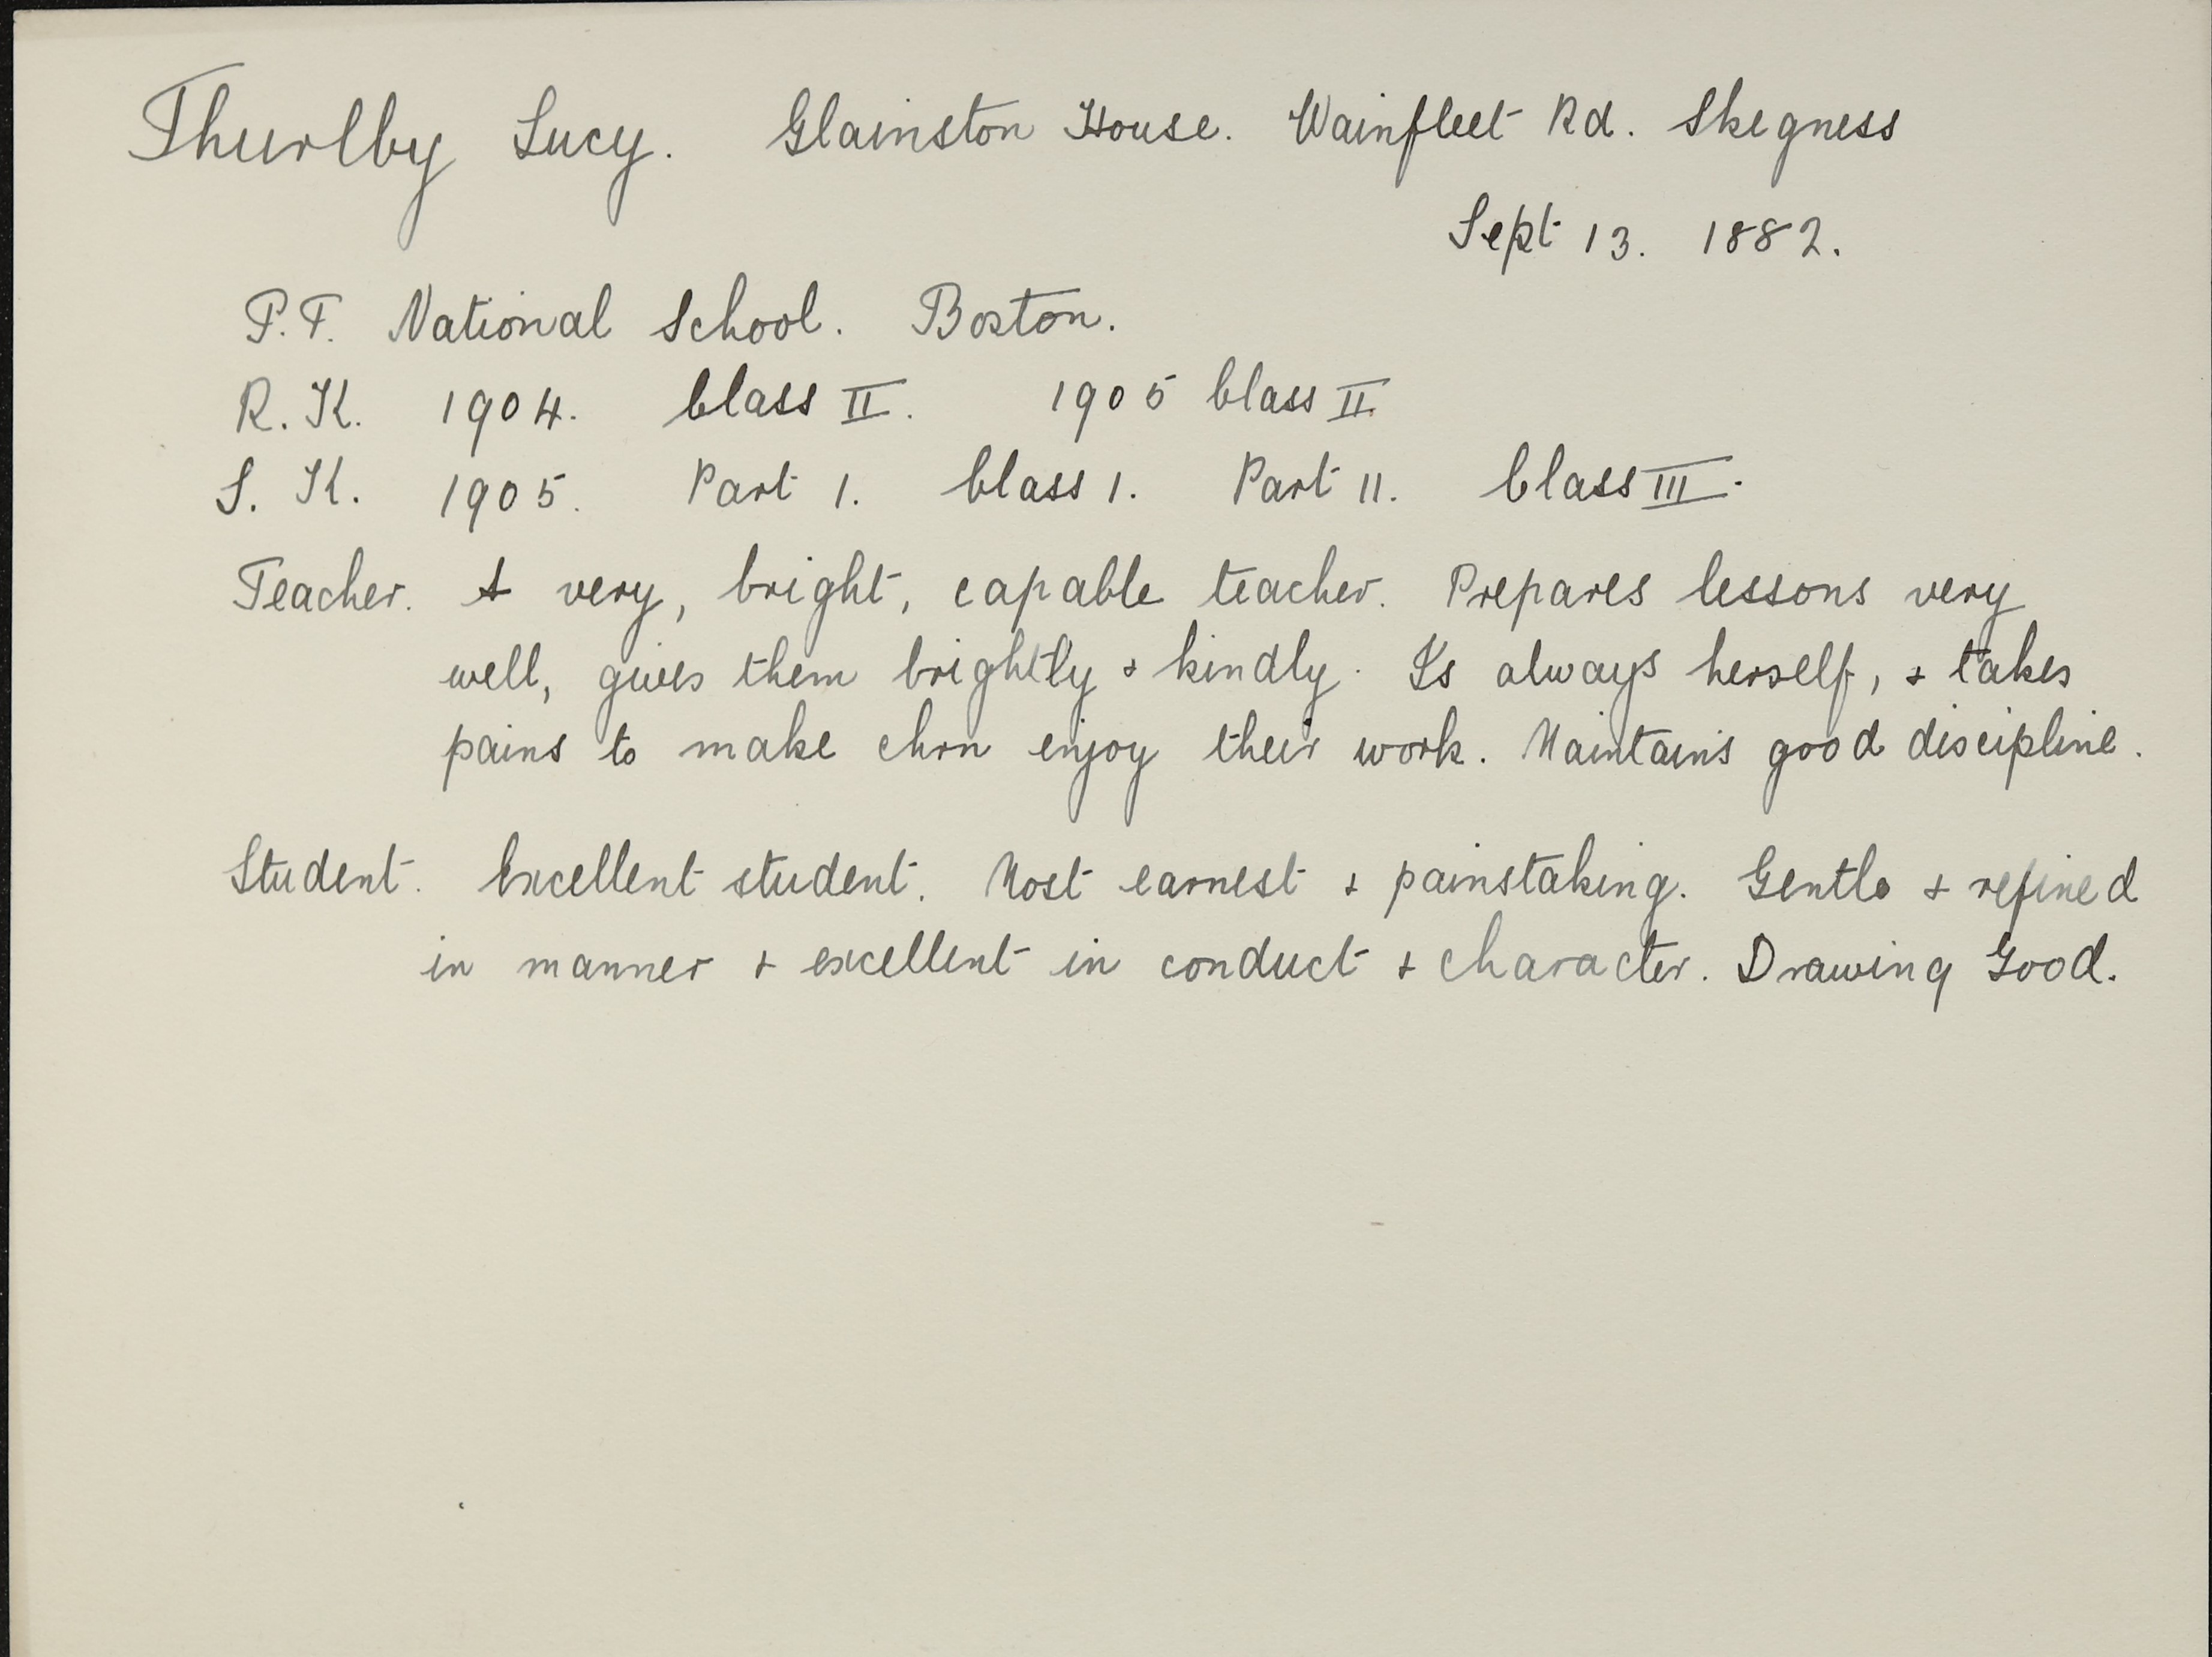 Thurlby Lucy. Glainston House. Wainfleet Rd. Skegness
Sept 13. 1882.
P.T. National School. Boston.
R. K. 1904. Class II. 1905 Class II
S. K. 1905. Part 1. Class 1. Part 11. Class III.
Teacher. A very, bright, capable teacher. Prepares lessons very
well, gives them brightly & kindly. Is always herself, & takes
pains to make chrn enjoy their work. Maintains good discipline.
Student. Excellent student. Most earnest & painstaking. Gentle & refined
in manner & excellent in conduct & character. Drawing Good.